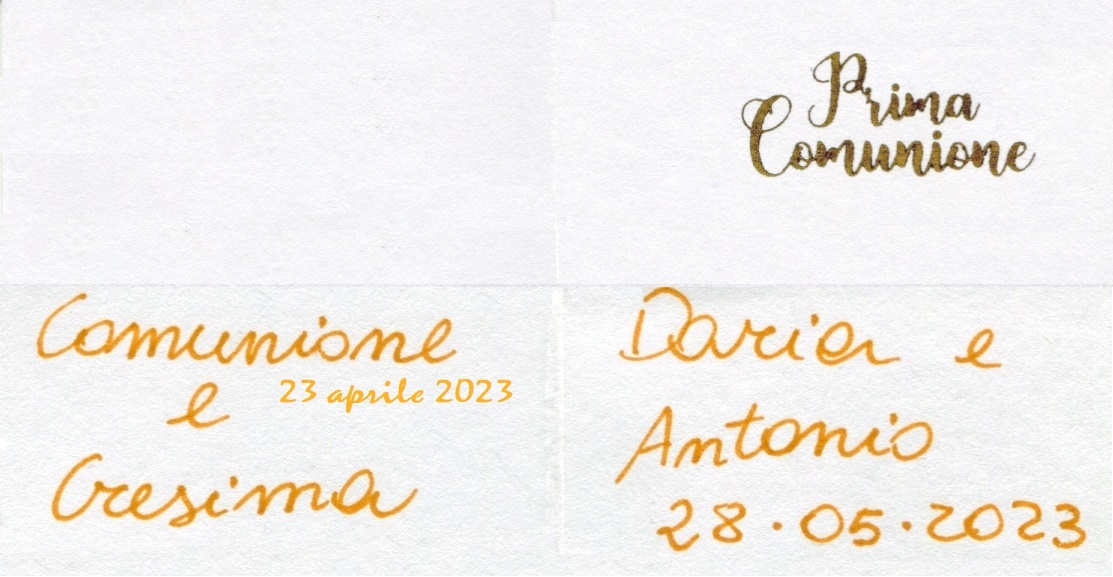 Prima
Comunione
Comunione
e
23 aprile 2023
Cresima
Daria e
Antonio
28.05.2023